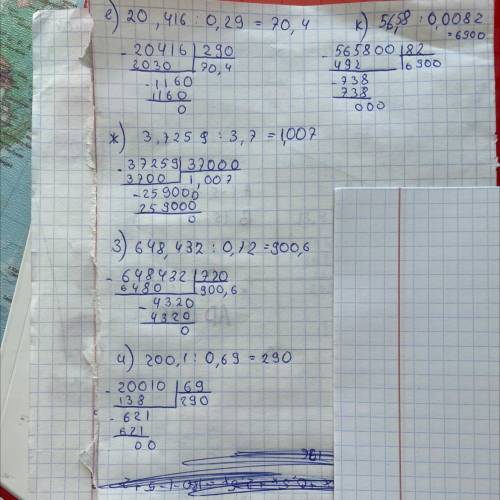 е) 20,416 : 0,29 = 70,4
- 20416 | 290
2030 | 70,4
- 1160
1160
0
к) 56,58 : 0,0082
= 6900
- 565800 | 82
492 | 6900
- 738
738
000
ж) 3,7259 : 3,7 = 1,007
- 37259 | 37000
3700 | 1,007
- 259000
259000
0
з) 648,432 : 0,12 = 900,6
- 648432 | 720
6480 | 900,6
- 4320
4320
0
и) 200,1 : 0,69 = 290
- 20010 | 69
138 | 290
- 621
621
00